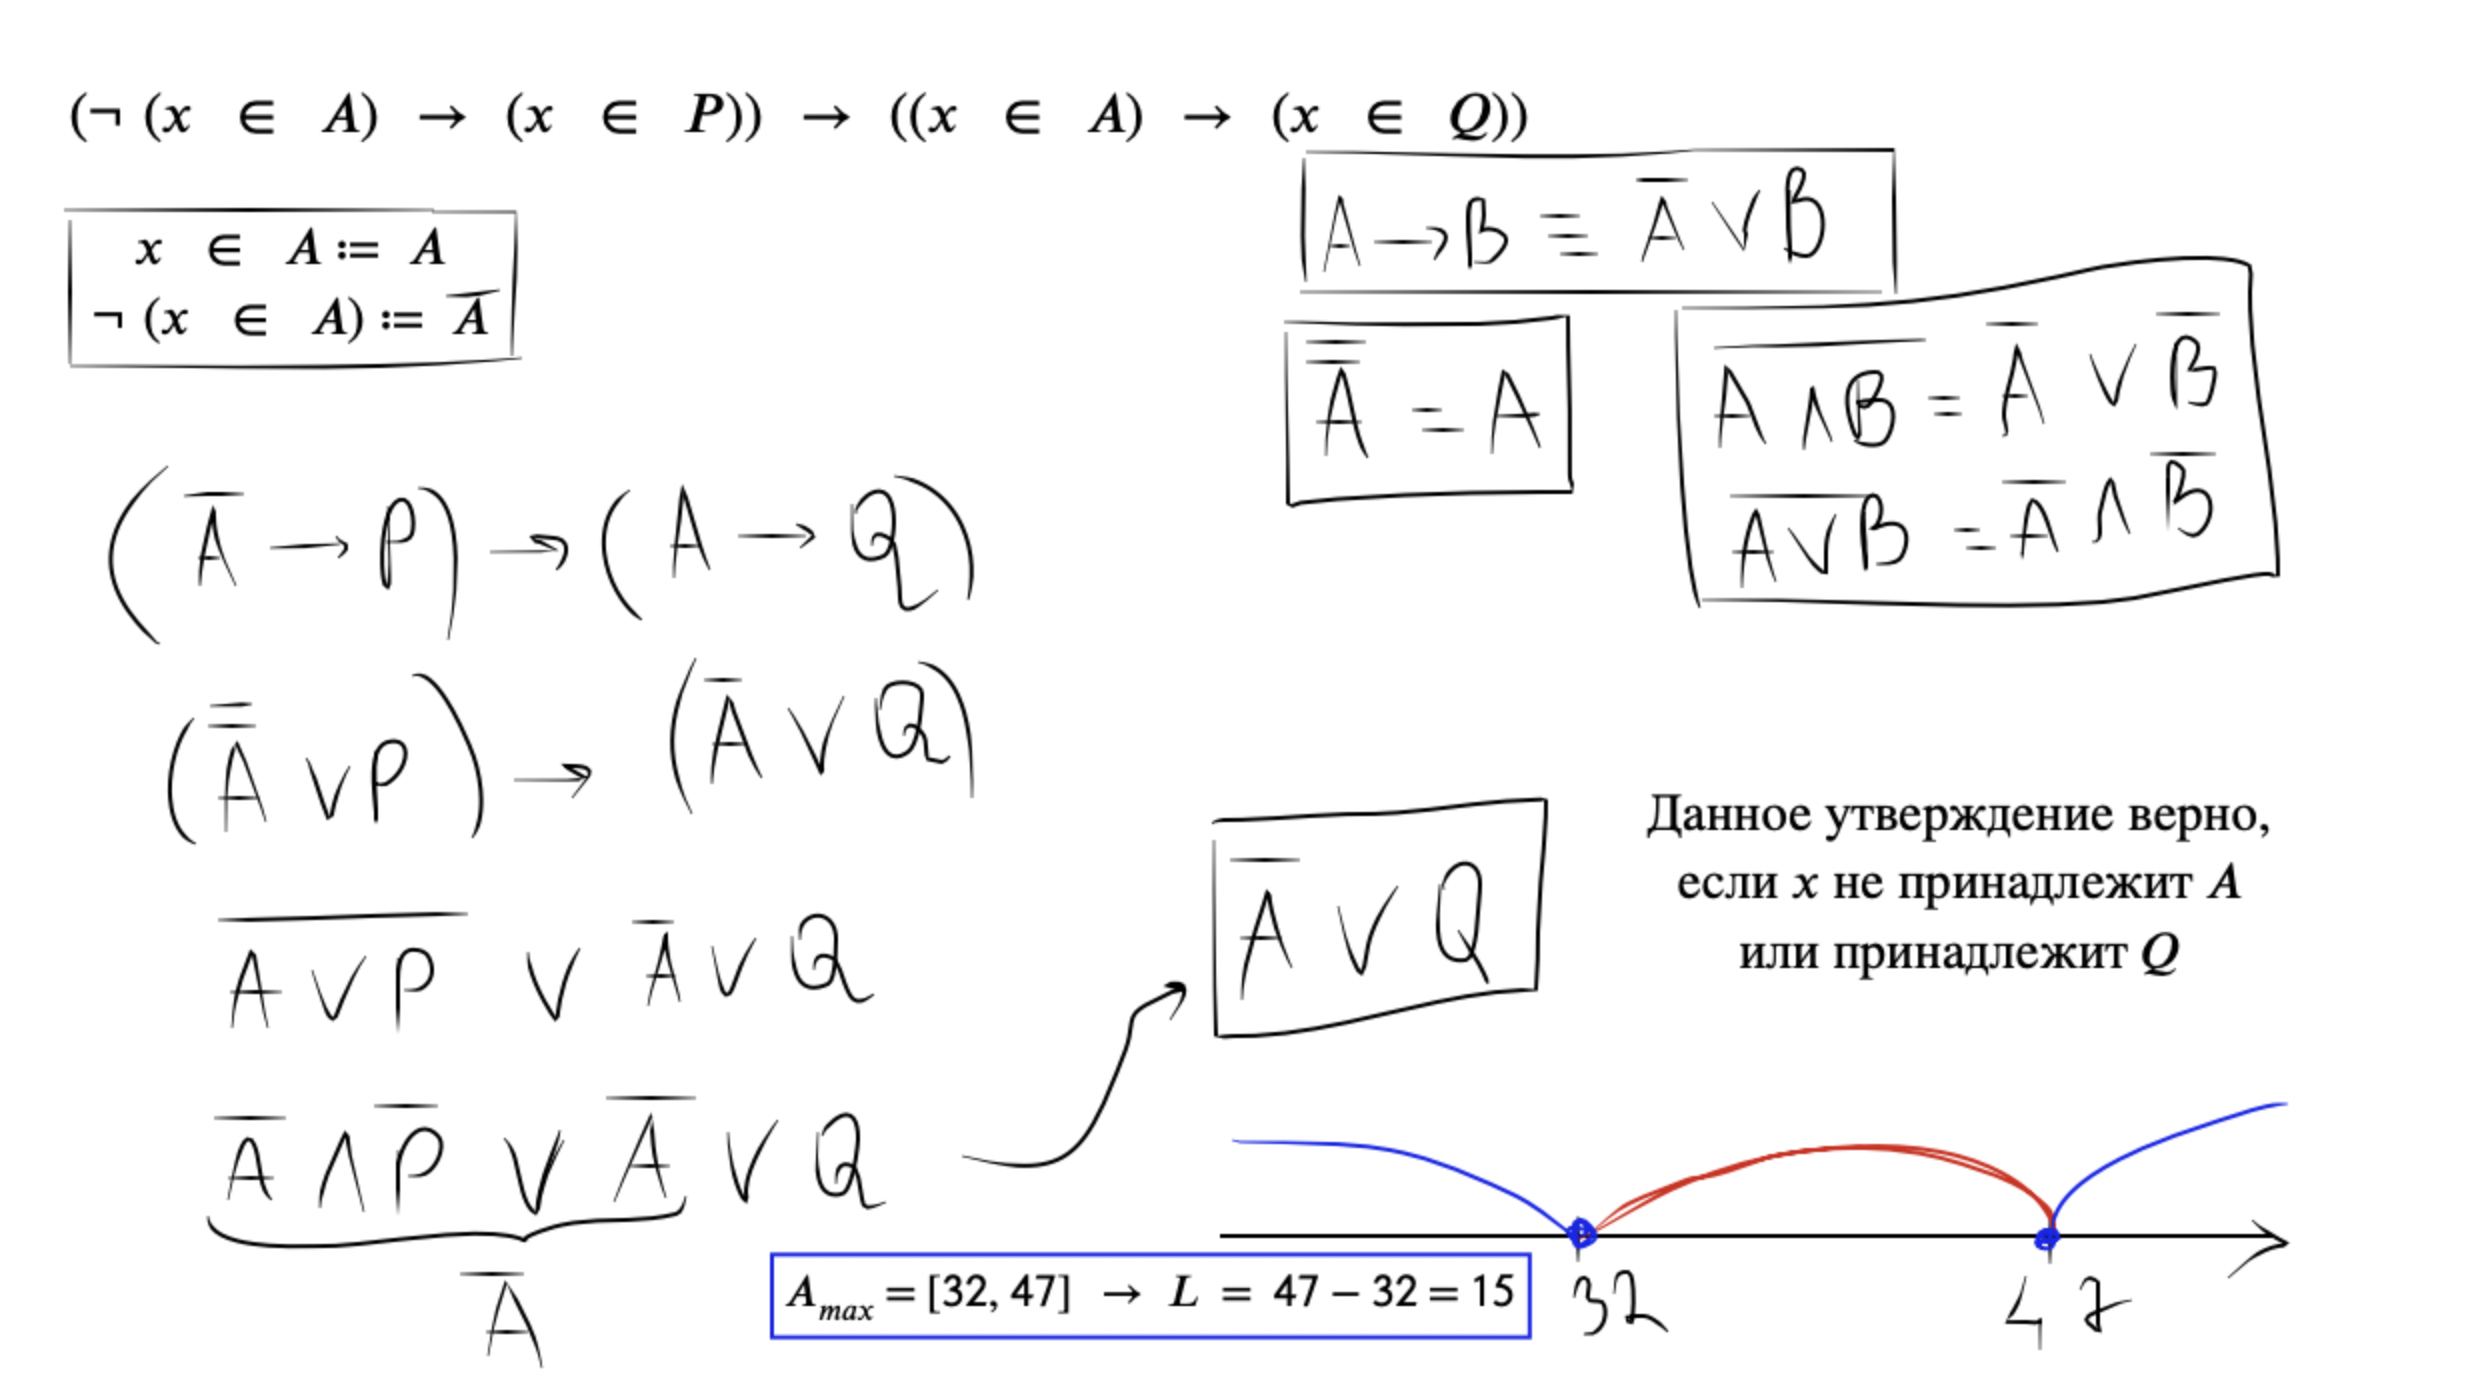 (¬ (x ∈ A) → (x ∈ P)) → ((x ∈ A) → (x ∈ Q))
x ∈ A := A
¬ (x ∈ A) := A̅
A → B ≡ A̅ ∨ B
A̿ = A
A̅ ̅∧̅ ̅B̅ = A̅ ∨ B̅
A̅ ̅∨̅ ̅B̅ = A̅ ∧ B̅
(A̅ → P) → (A → Q)
(A̿ ∨ P) → (A̅ ∨ Q)
A̅ ̅∨̅ ̅P̅ ∨ A̅ ∨ Q
A̅ ∧ P̅ ∨ A̅ ∨ Q
A̅
A̅ ∨ Q
Данное утверждение верно,
если x не принадлежит A
или принадлежит Q
A_max = [32, 47] → L = 47 − 32 = 15
32 47